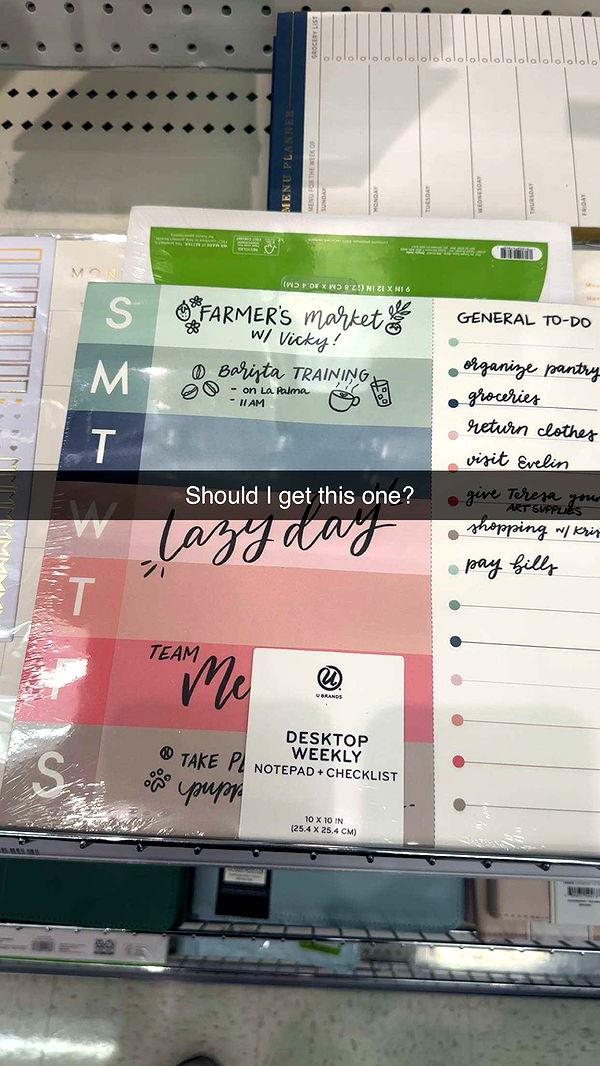 GROCERY LIST
MENU PLANNER
MENU FOR THE WEEK OF
SUNDAY
MONDAY
TUESDAY
WEDNESDAY
THURSDAY
FRIDAY
9 IN X 12 IN (22.8 CM X 30.4 CM)
MON
S
FARMER'S market
w/ Vicky!
M
Barista TRAINING
- on La Palma
- 11 AM
T
W
lazy day
T
F
TEAM
Me
S
TAKE PL
pupp
GENERAL TO-DO
organize pantry
groceries
return clothes
visit Evelin
give Teresa your
ART SUPPLIES
shopping w/ Kris
pay bills
Should I get this one?
U BRANDS
DESKTOP
WEEKLY
NOTEPAD + CHECKLIST
10 X 10 IN
(25.4 X 25.4 CM)